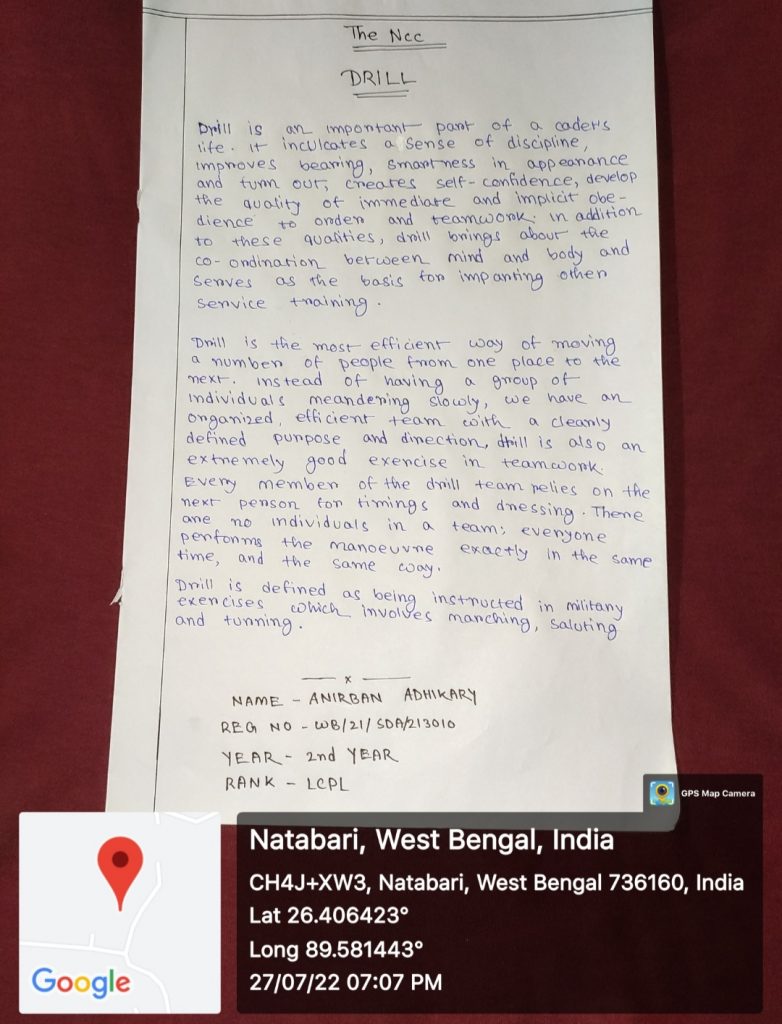 The Ncc
DRILL
Drill is an important part of a cadet's
life. it inculcates a sense of discipline,
improves bearing, smartness in appearance
and turn out, creates self-confidence, develop
the quality of immediate and implicit obe-
dience to order and teamwork. in addition
to these qualities, drill brings about the
co-ordination between mind and body and
serves as the basis for imparting other
service training.
Drill is the most efficient way of moving
a number of people from one place to the
next. instead of having a group of
individuals meandering slowly, we have an
organized, efficient team with a clearly
defined purpose and direction, drill is also an
extremely good exercise in teamwork.
Every member of the drill team relies on the
next person for timings and dressing. There
are no individuals in a team; everyone
performs the manoeuvre exactly in the same
time, and the same way.
Drill is defined as being instructed in military
exercises which involves marching, saluting
and turning.
x
NAME - ANIRBAN ADHIKARY
REG NO - WB/21/SDA/213010
YEAR - 2nd YEAR
RANK - LCPL
GPS Map Camera
Natabari, West Bengal, India
CH4J+XW3, Natabari, West Bengal 736160, India
Lat 26.406423°
Long 89.581443°
27/07/22 07:07 PM
Google